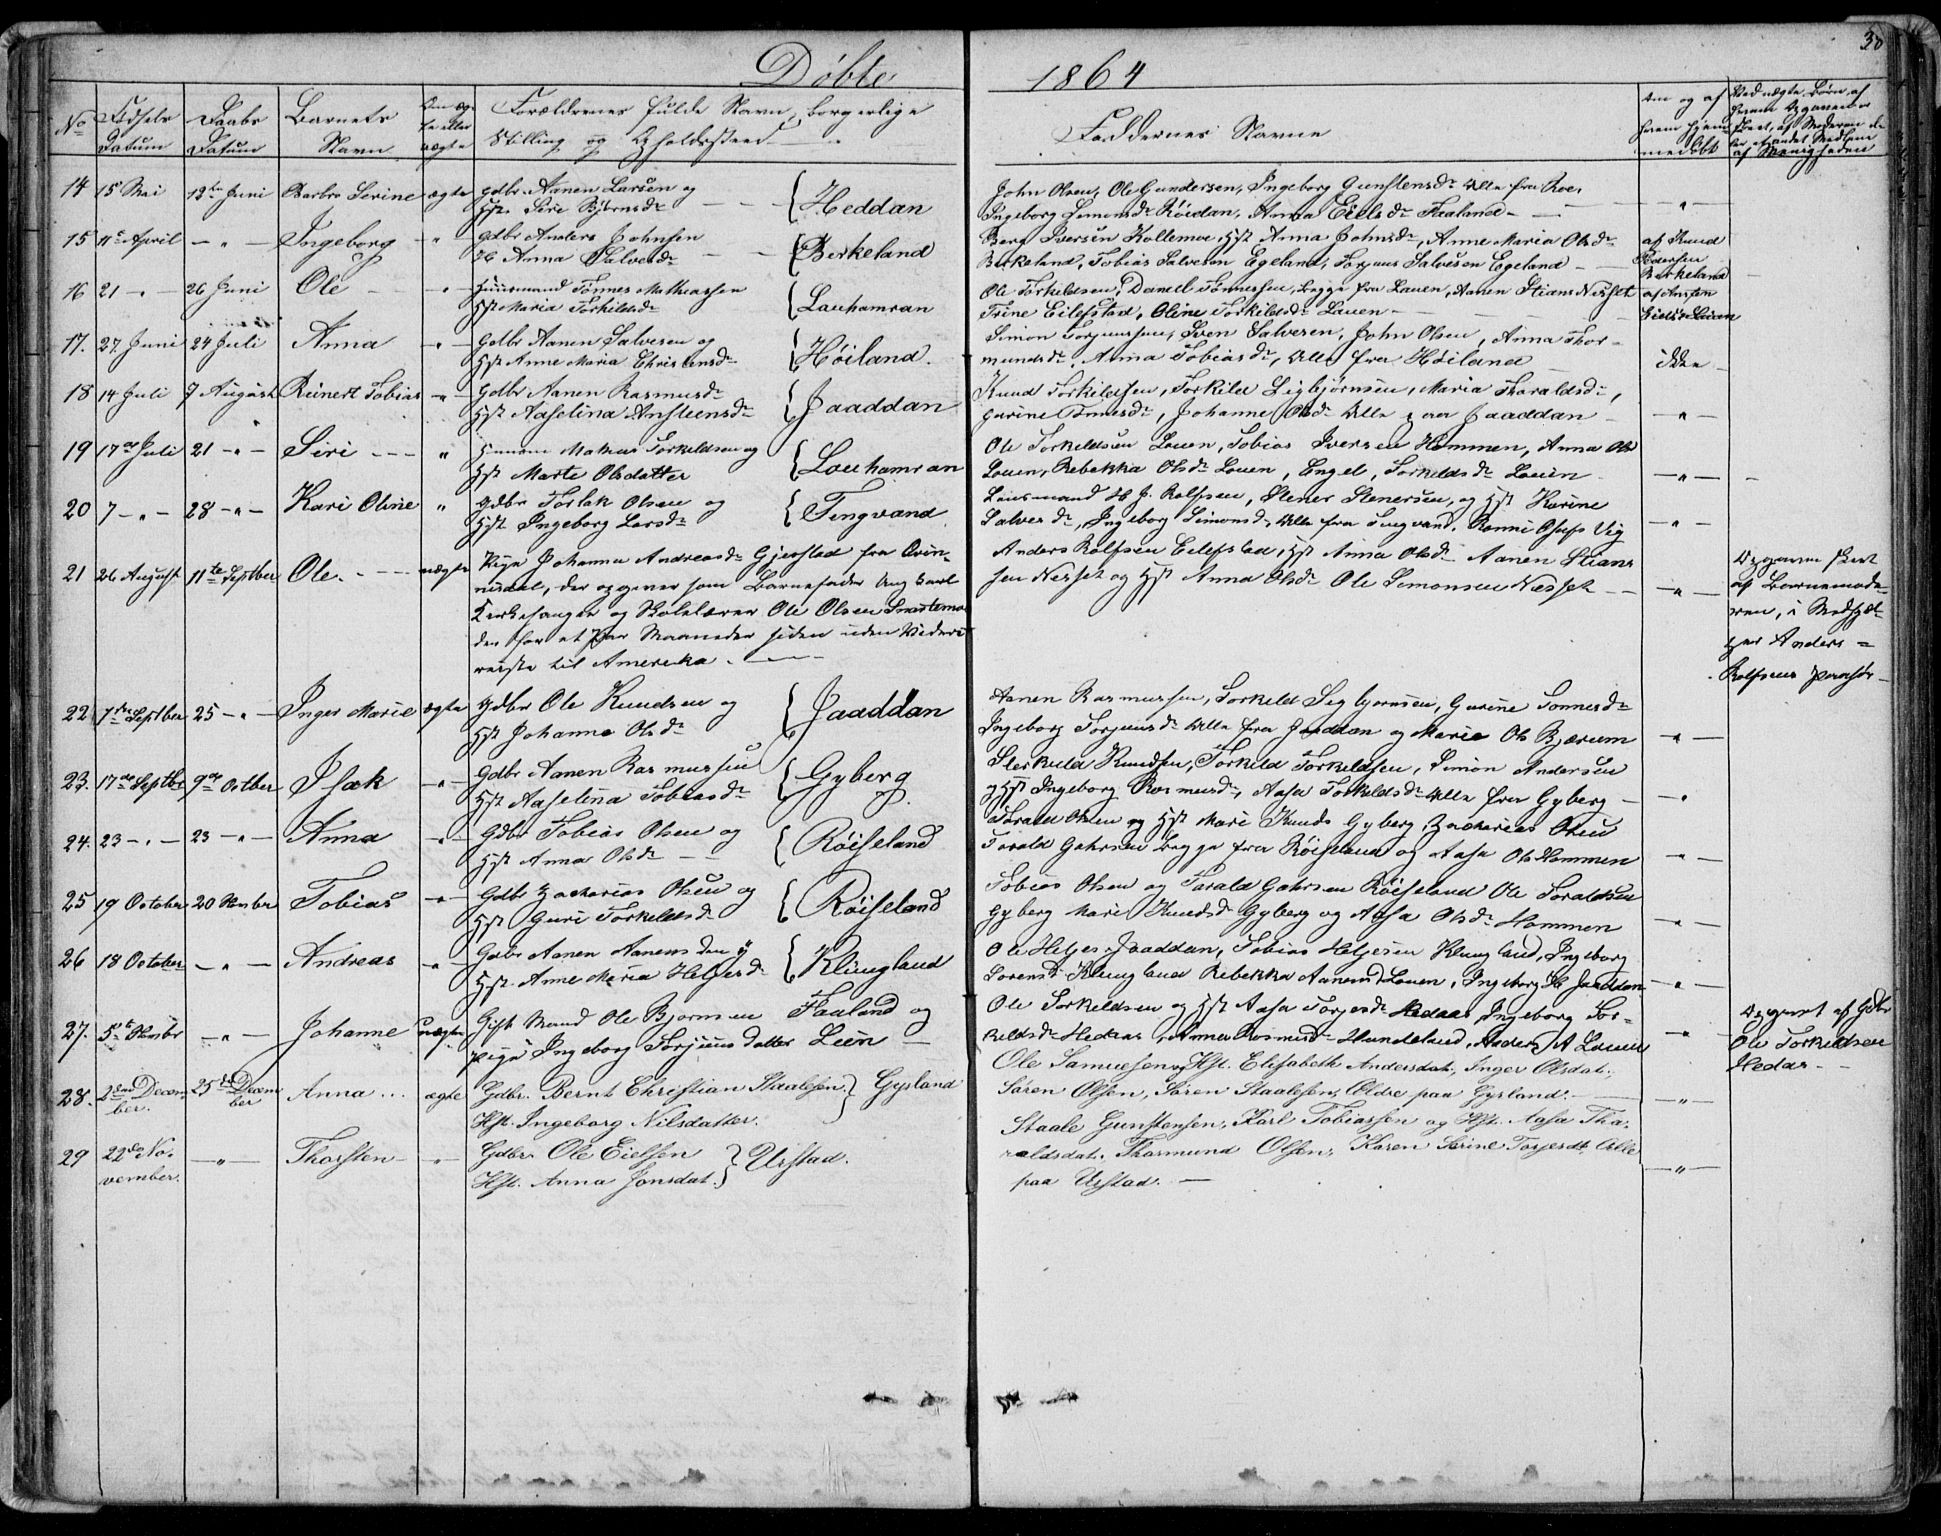 Döbte 1864
30
No
Födsels Datum
Daabs Datum
Barnets Navn
Om ægte eller uægte
Forældrenes fulde Navn, borgerlige
Stilling og Opholdssted
Faddernes Navne
Om og af hvem hjemmedöbt
14 15 Mai 12te Juni Barbro Serine ægte Gdbr Aanen Larsen og
Hst. Siri Björnsdr { Heddan
John Olsen, Ole Gundersen, Ingeborg Gunstensdr Alle fra Roe,
Ingeborg Simonsdr Röidan, Anna Eielsdr Faaland - "
15 11te April - " - Ingeborg " Gdbr Anders Johnsen
H Anna Salvesdr { Birkeland
Berg Iversen Kollemoe, Hst Anna Johnsdr, Anne Maria Olsdr
Birkeland, Tobias Salvesen Egeland, Torjuus Salvesen Egeland
af Knud Pedersen Birkeland
16 21 - " - 26 Juni Ole " Huusmand Tönnes Mathiassen
Hst Maria Torkildsdr { Lauhamran
Ole Torkildsen, Daniel Tönnessen, begge fra Lauen, Aanen Stians Nesset
Trine Eilefstad, Oline Torkildsdr Lauen
17. 27. Juni 24 Juli Anna - " - Gdbr Aanen Salvesen og
Hst Anne Maria Christensdr { Höiland.
Simon Torjuussen, Sven Salvesen, John Olsen, Anna Thor-
mundsdr. Anna Tobiasdr, Alle fra Höiland
ikke
18 14 Juli 7 August Reinert Tobias - " - Gdbr Aanen Rasmusdr
Hst Aaselina Ansteensdr { Jaaddan
Knud Torkildsen, Torkild Sigbjörnsen, Maria Tharaldsdr,
Gurine Tönnesdr, Johanne Olsdr Alle paa Jaaddan - "
19 17de Juli 21 - " - Siri - - - " Huusm Markus Torkeldsen og
Hst Marte Olsdatter { Lauhamran
Ole Torkeldsen Lauen, Tobias Iversen Hommen, Anna Ols
Lauen, Rebekka Olsdr Lauen, Engel, Torkeldsdr Lauen - " -
20 7 - " - 28 - " - Kari Oline " Gdbr Torlak Olsen og
Hst Ingeborg Larsdr { Tingvand
Lensmand H J. Rolfsen, Stener Stenersen, og Hst Karine
Salvesdr, Ingeborg Simonsdr Alle fra Tingvand. Ronni Osufs Vig - " -
21 26 August 11te Septber Ole. - - - uægte Pige Johanna Andreasdr Gjerstad fra Qvin-
nisdal, der opgiver som Barnefader Ung Karl
Kirkesanger og Skolelærer Ole Olsen Snartemo
der for et Par Maaneder siden uden Videre
reiste til Amerika. -
Anders Rolfsen Eilefstad, Hst Anna Olsdr Aanen Stians
sen Nesset og Hst Anna Olsdr Ole Simonsen Nesset - " -
Opgaven skeet
af Barnemode-
ren, i Medhjæl-
per Anders
Rolfsens Paahör
22 7de Septber 25 - " - Inger Marie ægte Gdbr Ole Knudsen og
Hst Johanne Olsdr { Jaaddan
Aanen Rasmussen, Torkeld Sigbjörnsen, Gurine Tönnesdr
Ingeborg Torjuusdr Alle fra Jaaddan og Marie Ols Bærum - " -
23. 17de Septbr 9de Octber Isak - " - Gdbr Aanen Rasmussen
Hst Aaselina Tobiasdr { Gyberg.
Sterkuld Knudsen, Torkild Torkeldsen, Simon Andersen
og Hst Ingeborg Rasmusdr, Aasa Torkeldsdr Alle fra Gyberg - " -
24. 23 - " - 23 - " - Anna - " - Gdbr Tobias Olsen og
Hst Anna Olsdr { Röiseland
Torald Olsen og Hst Mari Knuds Gyberg, Zacharias Olsen
Torald Gahrsen begge fra Röiseland og Aasa Ols Hommen - " -
25 19 October 20 Novber Tobias - " - Gdbr Zacharias Olsen og
Hst Guri Torkeldsdr { Röiseland
Tobias Olsen og Tarald Gahrsen Röiseland Ole Toraldsen
Gyberg Mari Knudsdr Gyberg og Aasa Olsdr Hommen - " -
26 18 October - " - Andreas - " - Gdbr Aanen Aanensen den y
Hst. Anne Maria Heljesdr { Klungland
Ole Heljes Jaaddan, Tobias Heljesen Klungland, Ingeborg
Sörensd Klungland Rebekka Aanensd Lauen, Ingeborg H Jaaddan - " -
27. 5te Novbr - " - Johanne uægte Gift Mand Ole Bjornsen Faaland og
Pige Ingeborg Torjuusdatter Lien -
Ole Torkeldsen og Hst Aasa Torjesdr Hedaas, Ingeborg Tor-
keldsdr Hedaas, Anna Rasmusdr Hundeland, Anders A Lauen - " -
Opgivet af Gdbr
Ole Torkildsen
Hedaas
28. 2den Decem-
ber. 25de Decem
ber Anna... ægte Gdbr. Bernt Christian Staalesen } Gysland
Hst. Ingeborg Nilsdatter.
Ole Samuelsen og Hst. Elisabeth Andersdat., Inger Olsdat.,
Sören Olsen, Sören Staalesen, Alle paa Gysland. - " -
29 22de No-
vember. - " - Thorsten " Gdbr. Ole Eielsen } Urstad.
Hst. Anna Jonsdat.
Staale Gunstensen, Karl Tobiassen og Hst. Aasa Tha-
raldsdat. Thormund Olsen, Karen Serine Torjesdt. Alle
paa Urstad. - " -